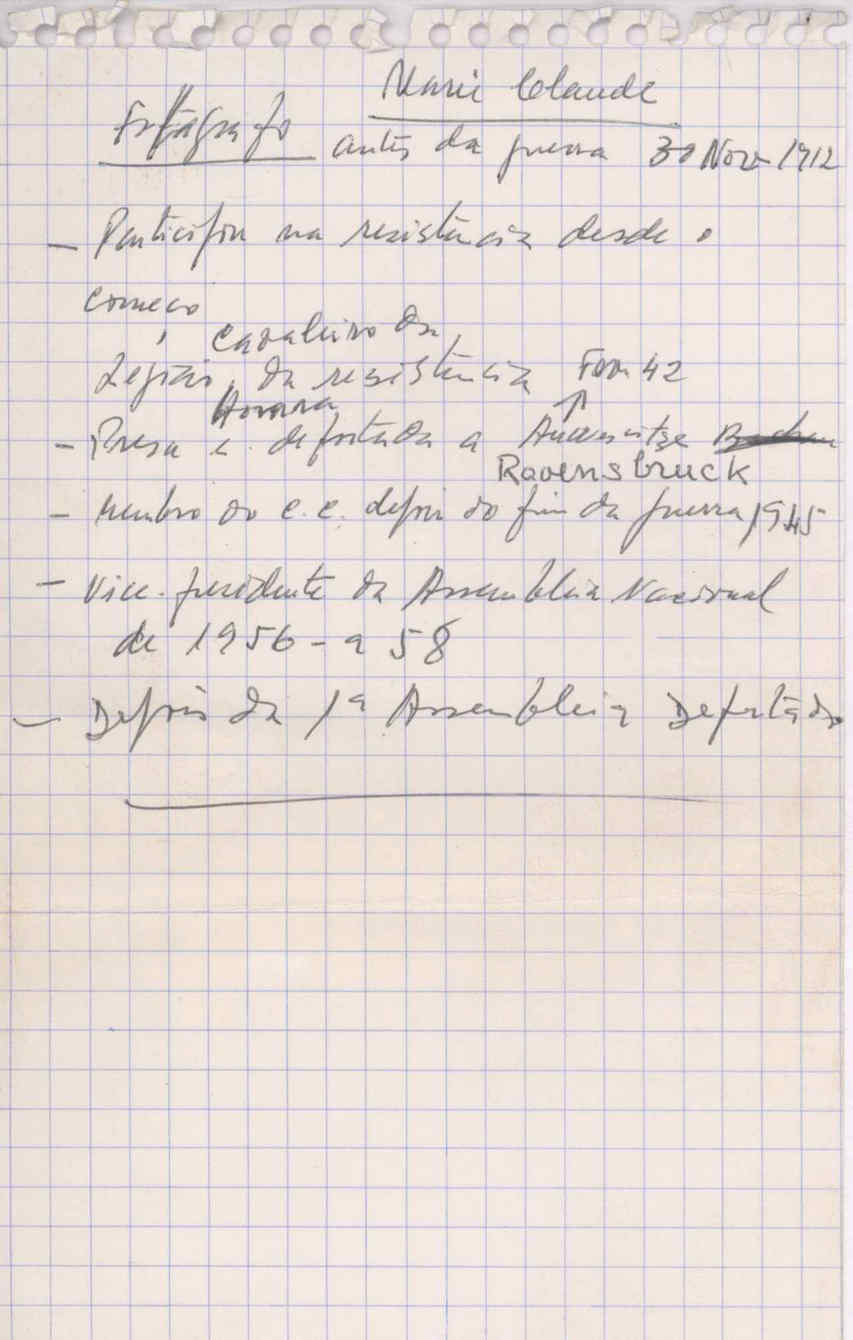 Marie Claude
Fotógrafo antes da guerra 30 Nov 1912
— Participou na resistência desde o
começo
Cavaleiro da
Legião da resistência Fev. 42
Honra
— Presa e deportada a Auxsvitse
Ravensbruck
— Membro do C.C. depois do fim da guerra 1945
— Vice-presidente da Assembleia Nacional
de 1956 - a 58
— Depois da 1ª Assembleia Deputado